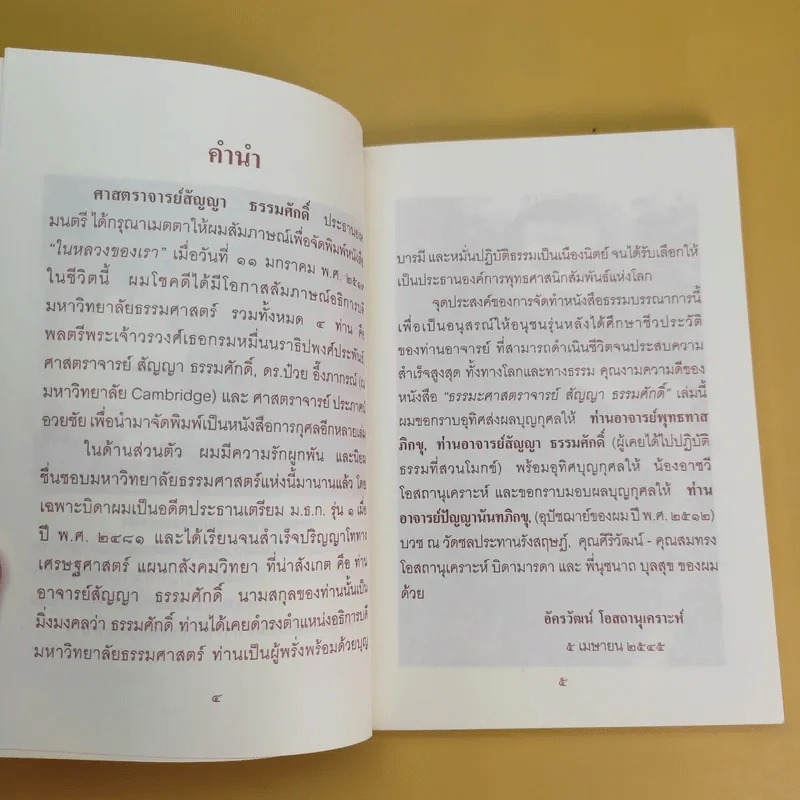 คำนำ
ศาสตราจารย์สัญญา ธรรมศักดิ์ ประธานองค
มนตรี ได้กรุณาเมตตาให้ผมสัมภาษณ์เพื่อจัดพิมพ์หนังสือ
"ในหลวงของเรา" เมื่อวันที่ ๑๑ มกราคม พ.ศ.
ในชีวิตนี้ ผมโชคดีได้มีโอกาสสัมภาษณ์อธิการบดี
มหาวิทยาลัยธรรมศาสตร์ รวมทั้งหมด ๔ ท่าน คือ
พลตรีพระเจ้าวรวงศ์เธอกรมหมื่นนราธิปพงศ์ประพันธ์,
ศาสตราจารย์ สัญญา ธรรมศักดิ์, ดร.ป๋วย อึ๊งภากรณ์ (ณ
มหาวิทยาลัย Cambridge) และ ศาสตราจารย์ ประภาศน์
อวยชัย เพื่อนำมาจัดพิมพ์เป็นหนังสือการกุศลอีกหลายเล่ม
ในด้านส่วนตัว ผมมีความรักผูกพัน และนิยม
ชื่นชอบมหาวิทยาลัยธรรมศาสตร์แห่งนี้มานานแล้ว โดย
เฉพาะบิดาผมเป็นอดีตประธานเตรียม ม.ธ.ก. รุ่น ๑ เมื่อ
ปี พ.ศ. ๒๔๘๑ และได้เรียนจนสำเร็จปริญญาโททาง
เศรษฐศาสตร์ แผนกสังคมวิทยา ที่น่าสังเกต คือ ท่าน
อาจารย์สัญญา ธรรมศักดิ์ นามสกุลของท่านนั้นเป็น
มิ่งมงคลว่า ธรรมศักดิ์ ท่านได้เคยดำรงตำแหน่งอธิการบดี
มหาวิทยาลัยธรรมศาสตร์ ท่านเป็นผู้พรั่งพร้อมด้วยบุญ
๔
บารมี และหมั่นปฏิบัติธรรมเป็นเนืองนิตย์ จนได้รับเลือกให้
เป็นประธานองค์การพุทธศาสนิกสัมพันธ์แห่งโลก
จุดประสงค์ของการจัดทำหนังสือธรรมบรรณาการนี้
เพื่อเป็นอนุสรณ์ให้อนุชนรุ่นหลังได้ศึกษาชีวประวัติ
ของท่านอาจารย์ ที่สามารถดำเนินชีวิตจนประสบความ
สำเร็จสูงสุด ทั้งทางโลกและทางธรรม คุณงามความดีของ
หนังสือ "ธรรมะศาสตราจารย์ สัญญา ธรรมศักดิ์" เล่มนี้
ผมขอกราบอุทิศส่งผลบุญกุศลให้ ท่านอาจารย์พุทธทาส
ภิกขุ, ท่านอาจารย์สัญญา ธรรมศักดิ์ (ผู้เคยได้ไปปฏิบัติ
ธรรมที่สวนโมกข์) พร้อมอุทิศบุญกุศลให้ น้องอาชวี
โอสถานุเคราะห์ และขอกราบมอบผลบุญกุศลให้ ท่าน
อาจารย์ปัญญานันทภิกขุ, (อุปัชฌาย์ของผม ปี พ.ศ. ๒๕๑๒)
บวช ณ วัดชลประทานรังสฤษฏ์, คุณศิริวัฒน์ - คุณสมทรง
โอสถานุเคราะห์ บิดามารดา และ พี่นุชนาถ บุลสุข ของผม
ด้วย
อัครวัฒน์ โอสถานุเคราะห์
๕ เมษายน ๒๕๔๕
๕